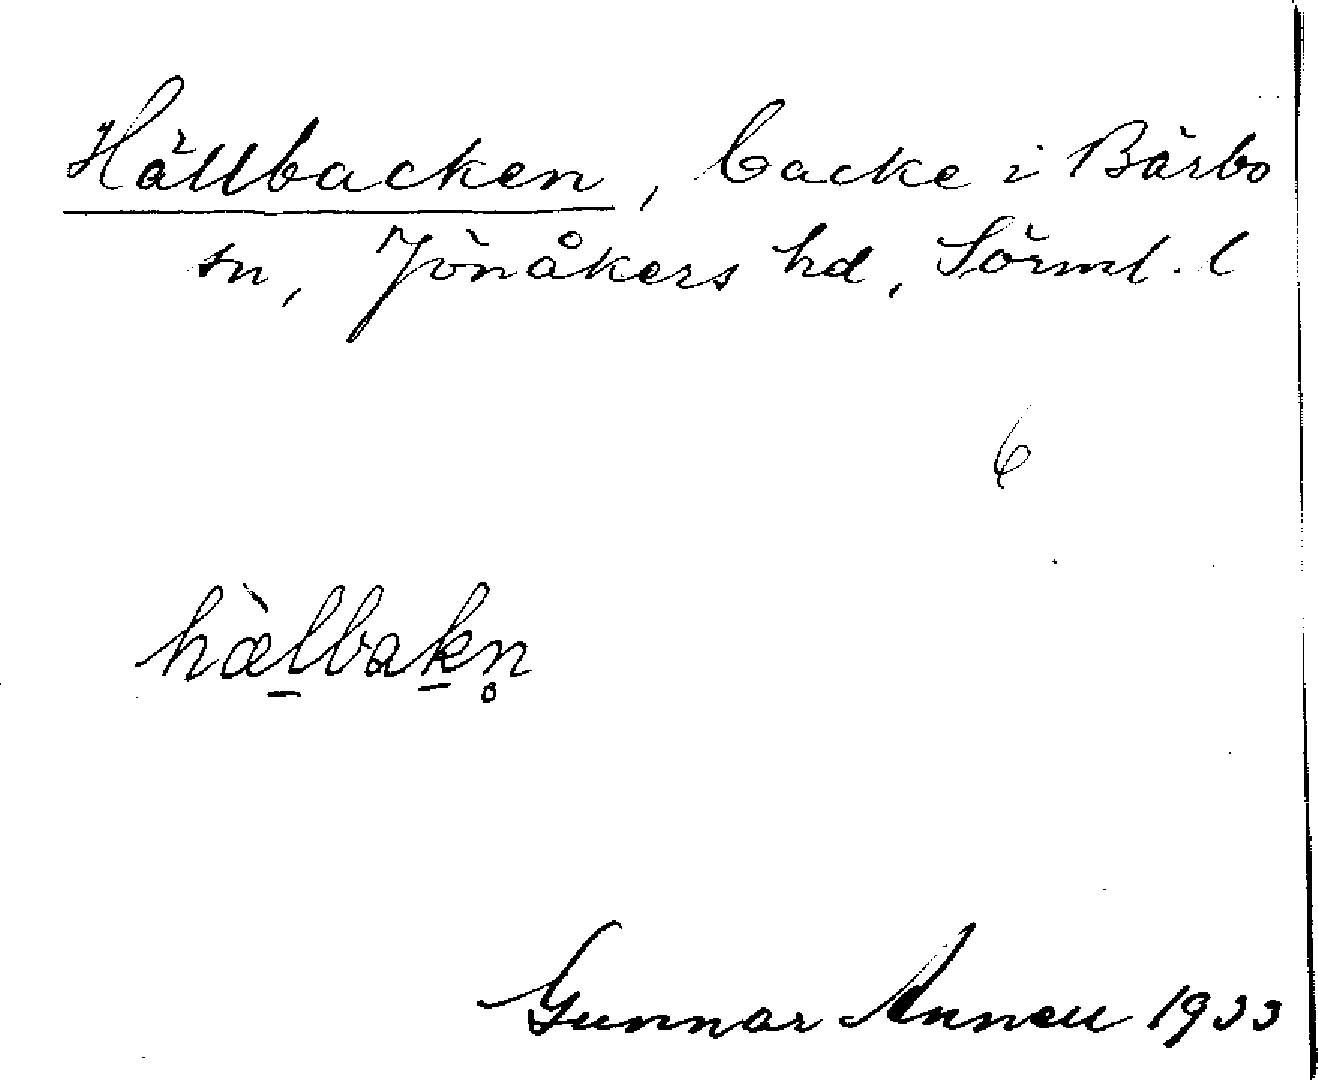 Hällbacken, backe i Bärbo
sn, Jönåkers hd, Sörml. l
6
hæ̀l̠bak̠n̥
Gunnar Annell 1933